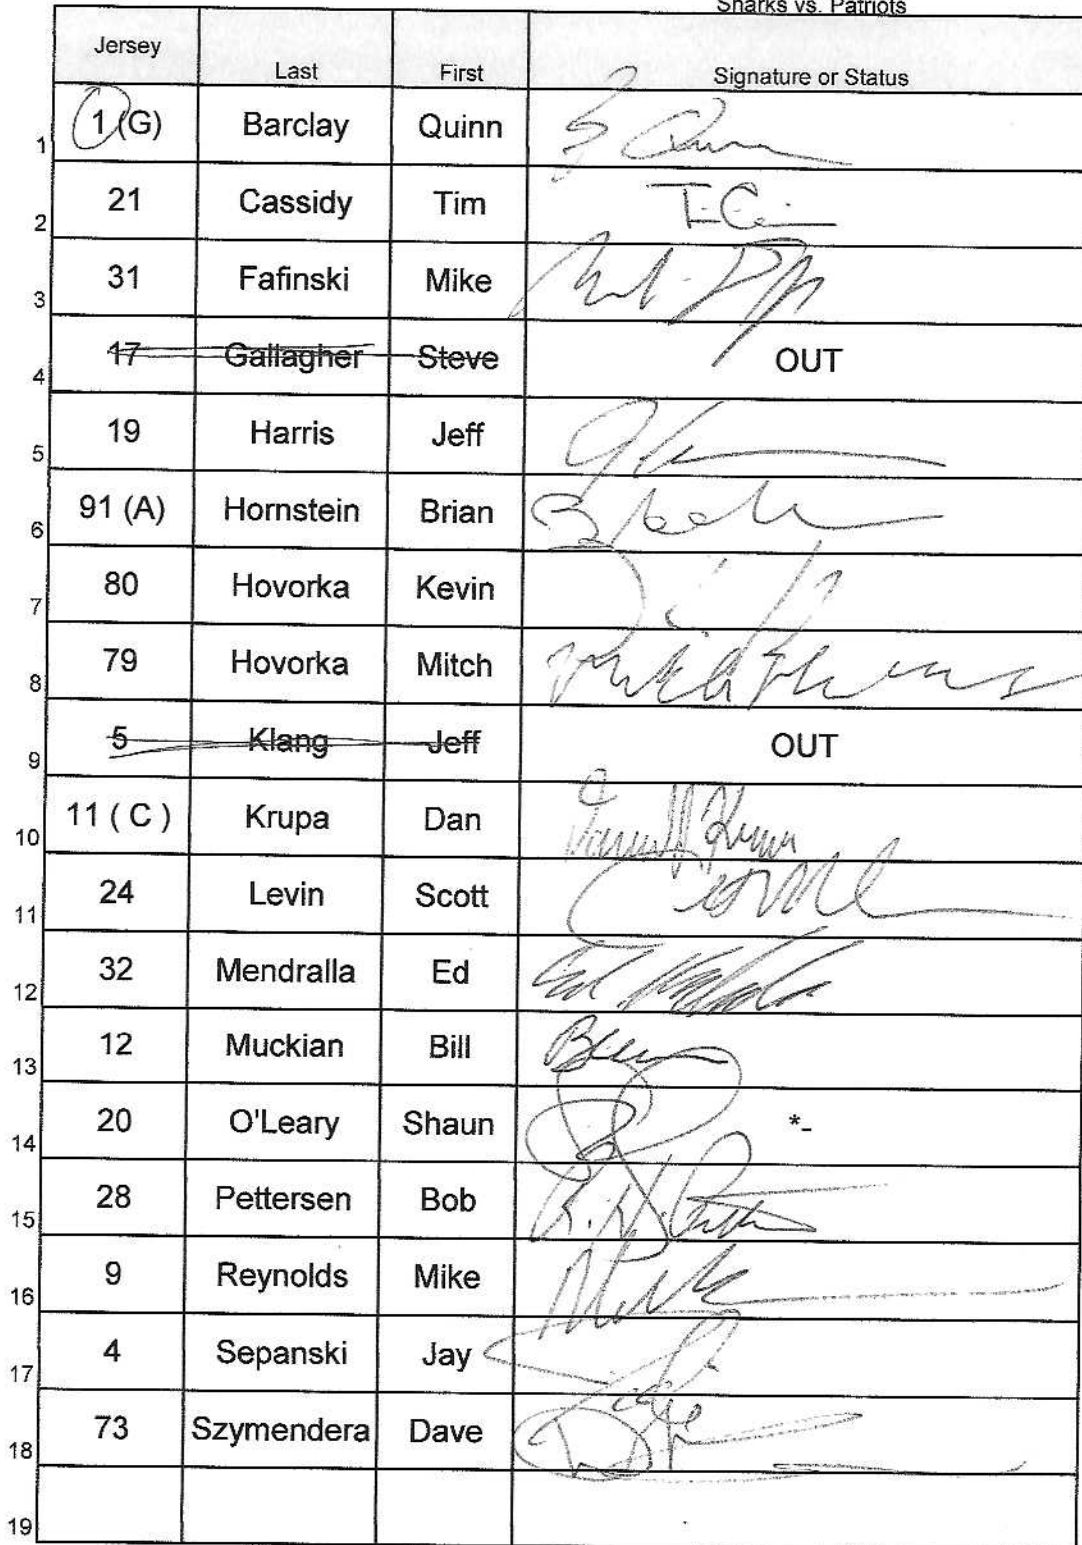 Sharks vs. Patriots
Jersey Last First Signature or Status
1 1 (G) Barclay Quinn
2 21 Cassidy Tim
3 31 Fafinski Mike
4 17 Gallagher Steve OUT
5 19 Harris Jeff
6 91 (A) Hornstein Brian
7 80 Hovorka Kevin
8 79 Hovorka Mitch
9 5 Klang Jeff OUT
10 11 ( C ) Krupa Dan
11 24 Levin Scott
12 32 Mendralla Ed
13 12 Muckian Bill
14 20 O'Leary Shaun *-
15 28 Pettersen Bob
16 9 Reynolds Mike
17 4 Sepanski Jay
18 73 Szymendera Dave
19